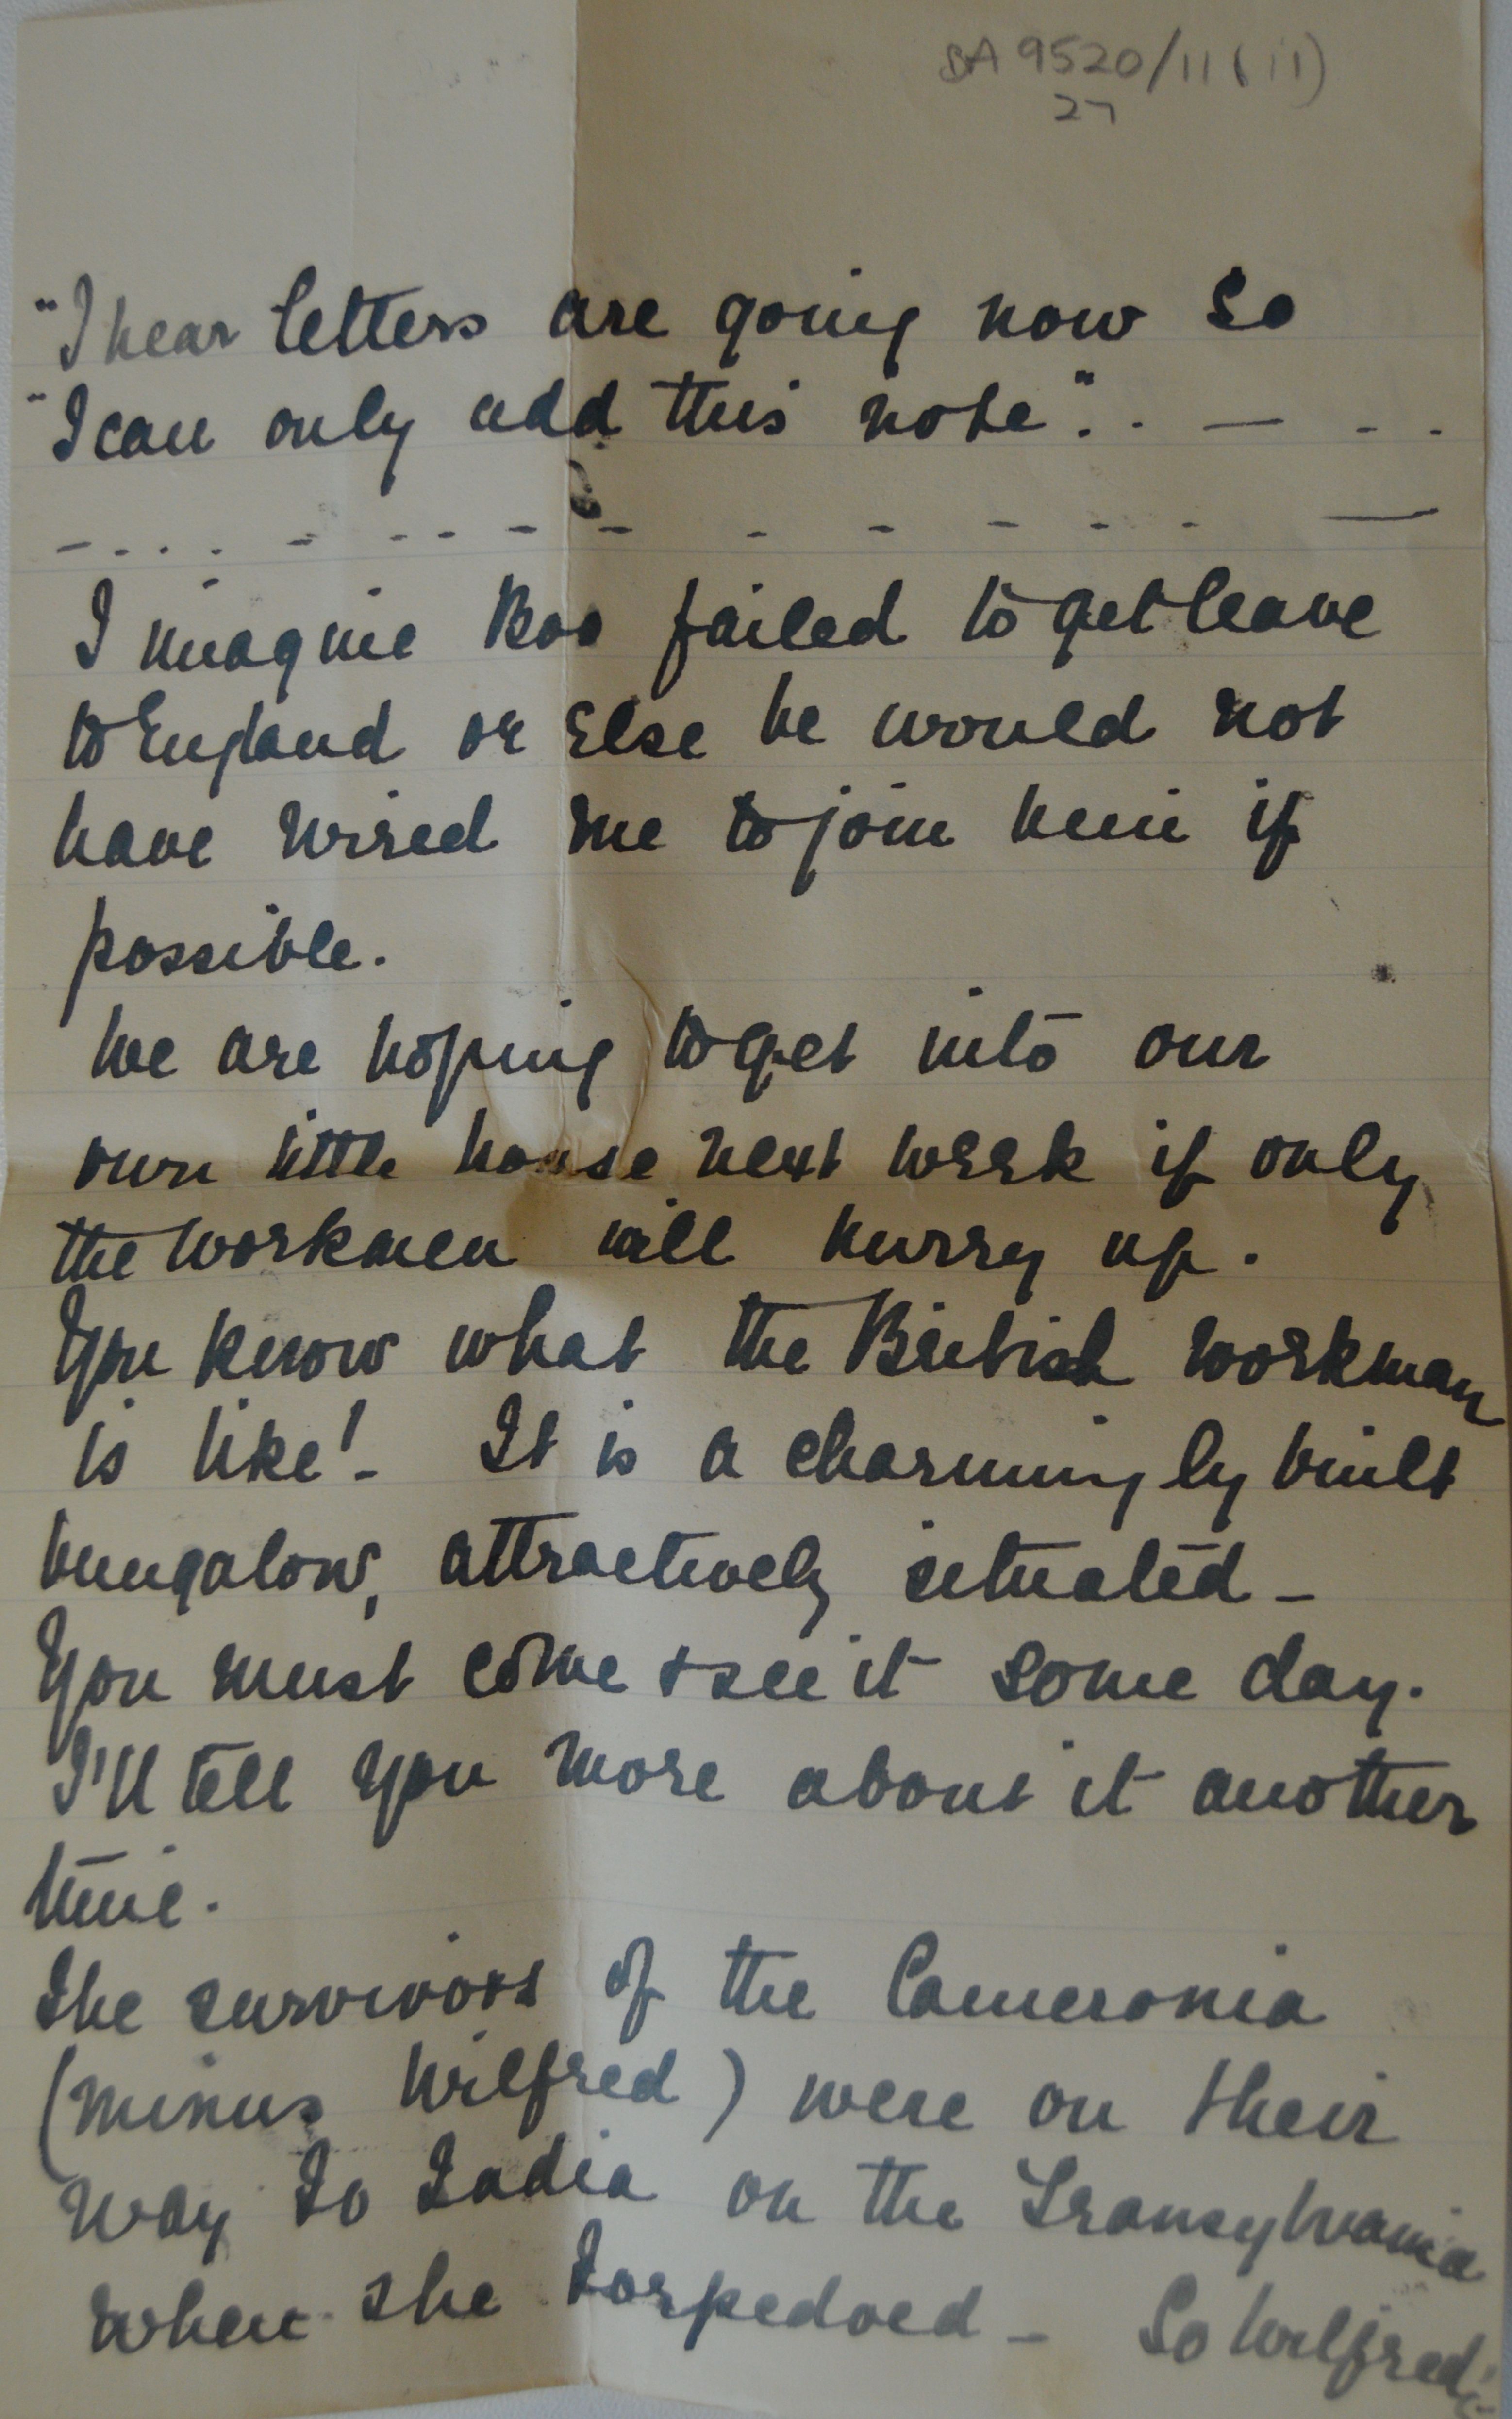 BA 9520/11(11)
27
"I hear letters are going now so
"I can only add this note". . — - .
- . . . - - - - - - - - - - - —
I imagine Boo failed to get leave
to England or else he would not
have wired me to join him if
possible.
We are hoping to get into our
own little house next week if only
the workmen will hurry up.
You know what the British workman
is like! - It is a charmingly built
bungalow, attractively situated -
You must come & see it some day.
I'll tell you more about it another
time.
The survivors of the Cameronia
(minus Wilfred) were on their
way to India on the Transylvania
when she torpedoed - So Wilfred's